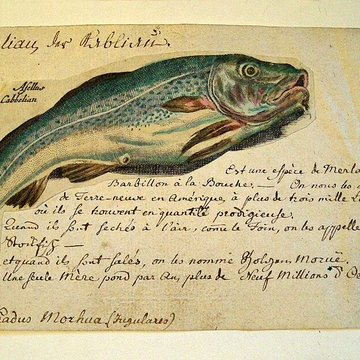 liau, der Kabliau.
Asellus
Cabbelian
Est une espèce de Merla
Barbillon à la Bouche; — On nous les
de Terre-neuve en Amérique, à plus de trois mille Li
où ils se trouvent en quantité prodigieuse.
Quand ils sont sechés à l'air, come le Foin, on les appelle
Stockfish —
et quand ils sont salés, on les nomme Morue.
Une seule Mère pond par An, plus de Neuf Millions d'Oe
Gadus Morhua (Jugulares)